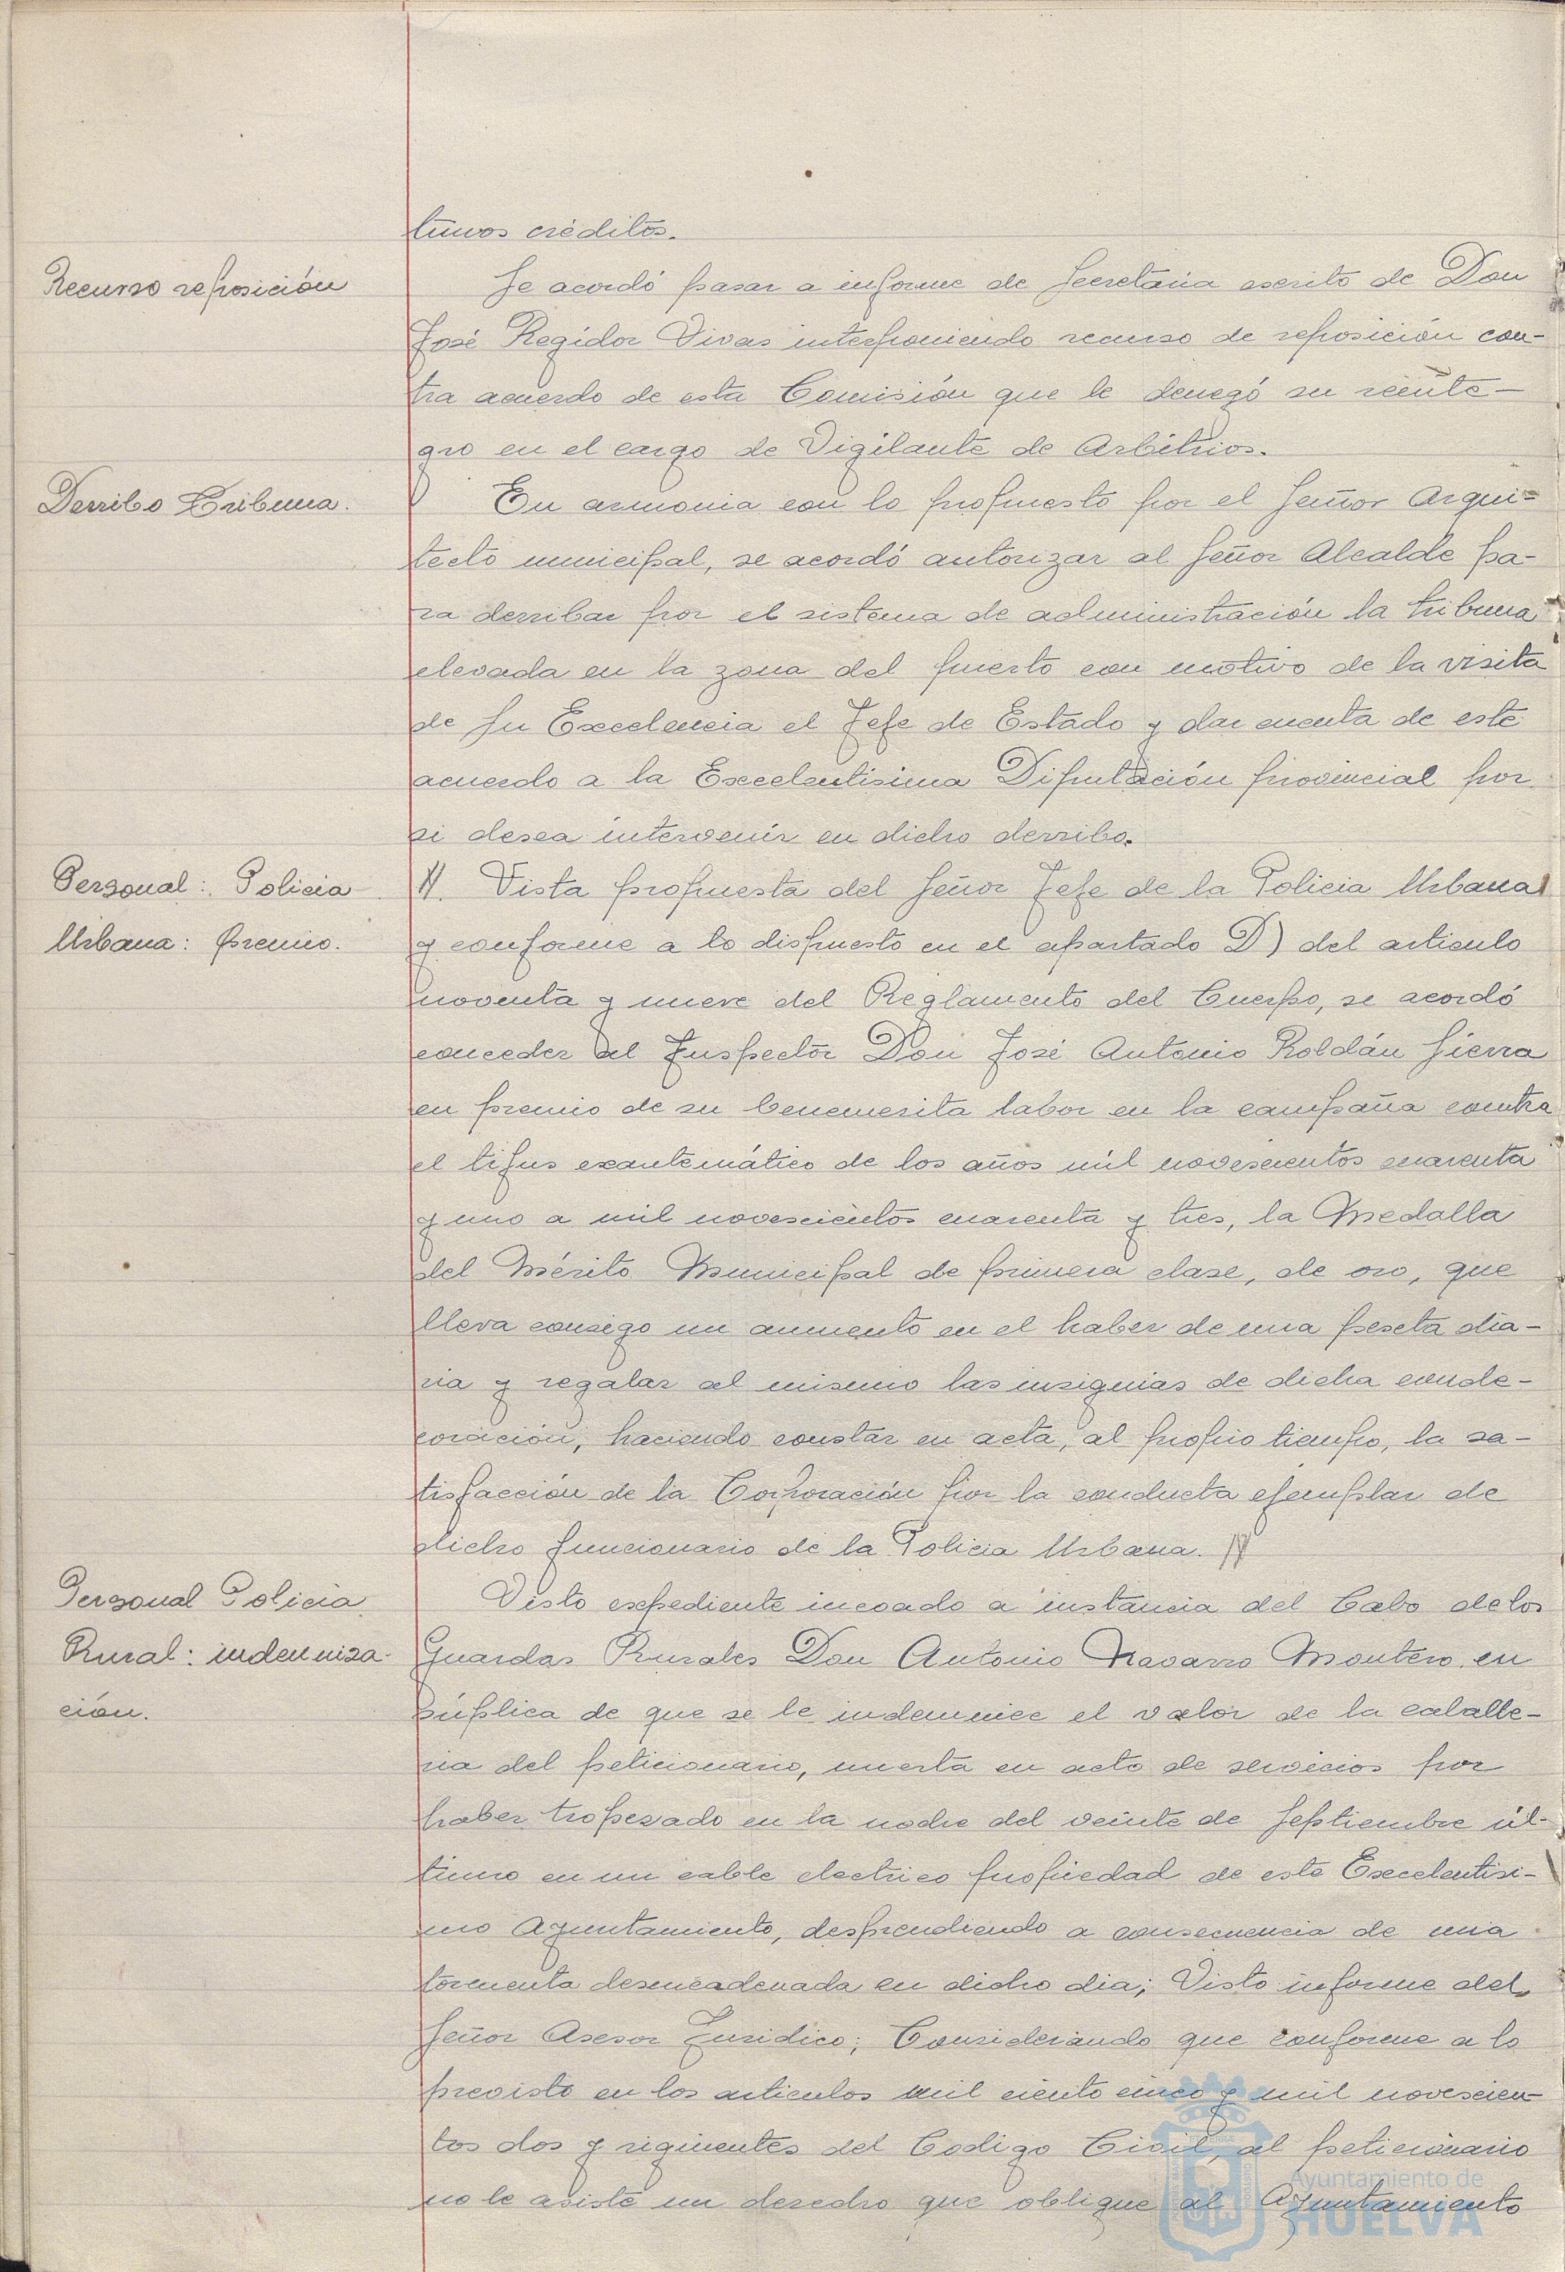 tunos créditos.
Recurso reposición
Se acordó pasar a informe de Secretaria escrito de Don
José Regidor Vivas interponiendo recurso de reposición con-
tra acuerdo de esta Comisión que le denegó su reinte-
gro en el cargo de Vigilante de Arbitrios.
Derribo Tribuna.
En armonia con lo propuesto por el Señor Arqui-
tecto municipal, se acordó autorizar al Señor Alcalde pa-
ra derribar por el sistema de administración la tribuna
elevada en la zona del puerto con motivo de la visita
de Su Excelencia el Jefe de Estado y dar cuenta de este
acuerdo a la Excelentisima Diputación provincial por
si desea intervenir en dicho derribo.
Personal: Policia
Urbana: premio.
Vista propuesta del Señor Jefe de la Policia Urbana
y conforme a lo dispuesto en el apartado D) del articulo
noventa y nueve del Reglamento del Cuerpo, se acordó
conceder al Inspector Don José Antonio Roldán Sierra
en premio de su benemerita labor en la campaña contra
el tifus exantemático de los años mil novescientos cuarenta
y uno a mil novescientos cuarenta y tres, la Medalla
del Mérito Municipal de primera clase, de oro, que
lleva consigo un aumento en el haber de una peseta dia-
ria y regalar al mismo las insignias de dicha conde-
coración, haciendo constar en acta, al propio tiempo, la sa-
tisfacción de la Corporación por la conducta ejemplar de
dicho funcionario de la Policia Urbana.
Personal Policia
Rural: indemniza-
ción.
Visto expediente incoado a instancia del Cabo de los
Guardas Rurales Don Antonio Navarro Montero en
súplica de que se le indemnice el valor de la caballe-
ria del peticionario, muerta en acto de servicios por
haber tropezado en la noche del veinte de Septiembre úl-
timo en un cable electrico propiedad de este Excelentisi-
mo Ayuntamiento, desprendiendo a consecuencia de una
tormenta desencadenada en dicho dia; Visto informe del
Señor Asesor Juridico; Considerando que conforme a lo
previsto en los articulos mil ciento cinco y mil novescien-
tos dos y siguientes del Codigo Civil, al peticionario
no le asiste un derecho que obligue al Ayuntamiento
Ayuntamiento de
HUELVA